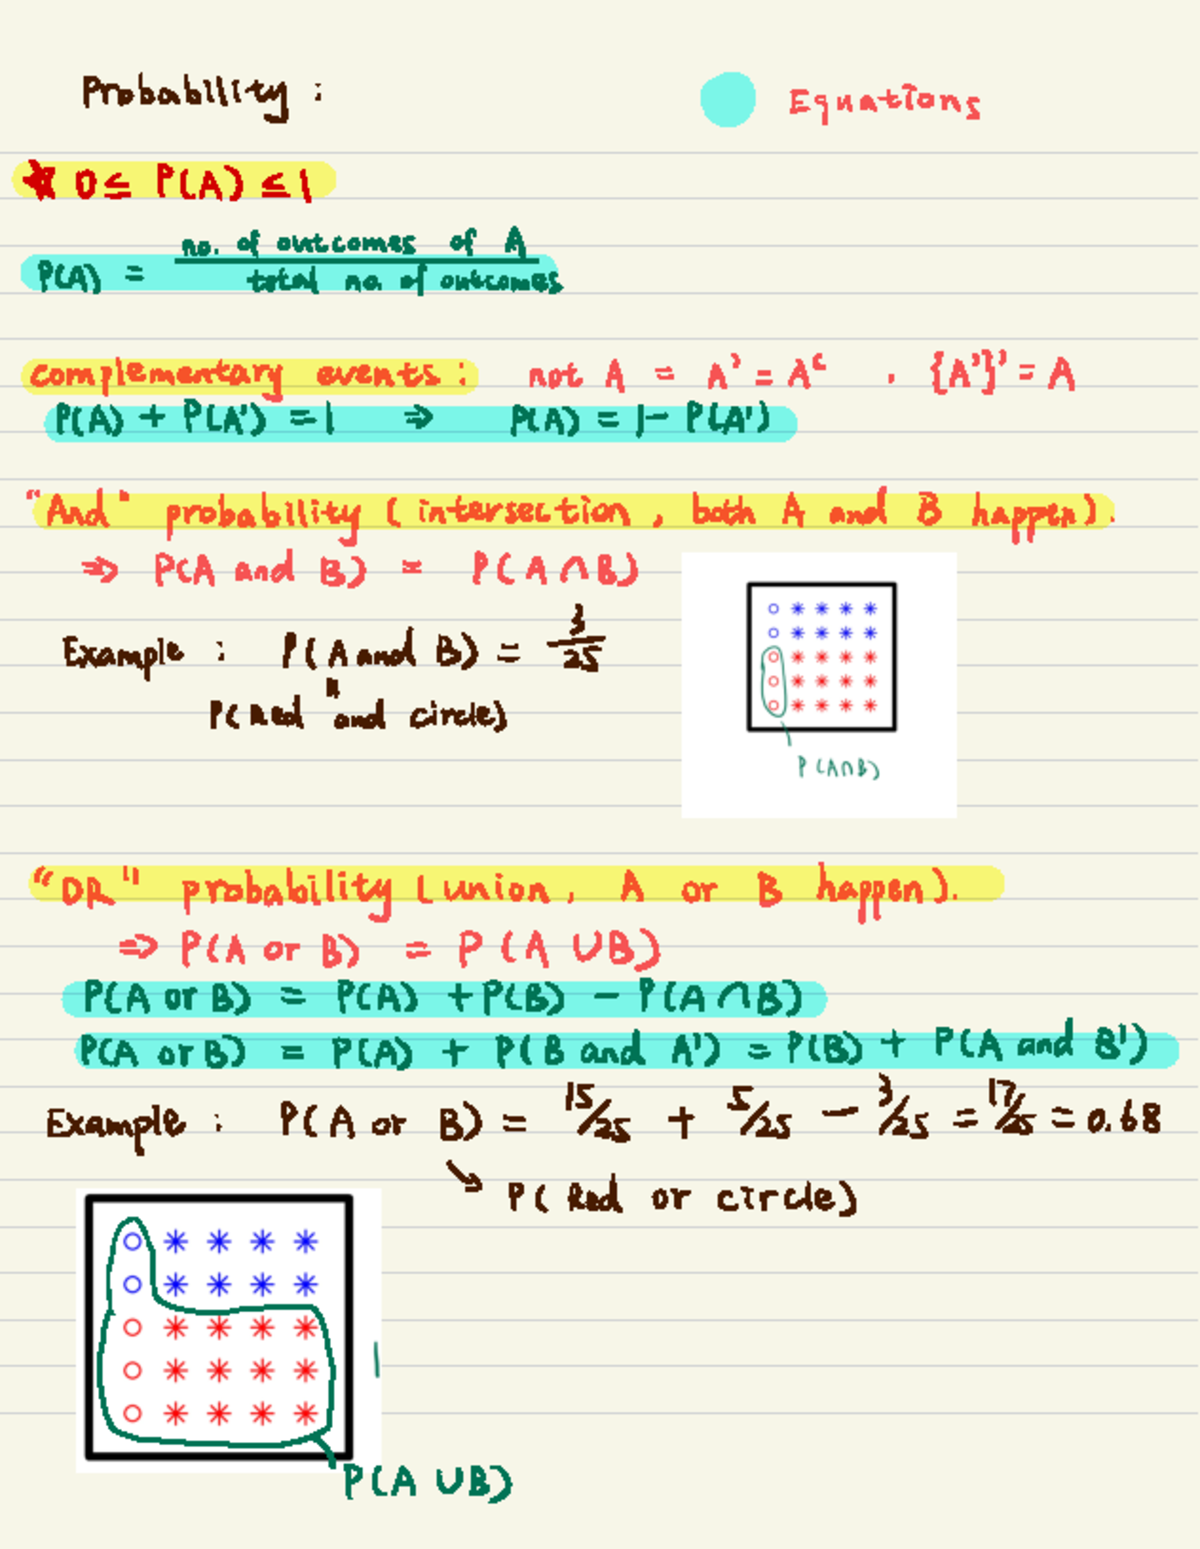 Probability :
Equations
★ 0 ≤ P(A) ≤ 1
P(A) = no. of outcomes of A / total no. of outcomes
complementary events : not A = A' = Aᶜ . {A'}' = A
P(A) + P(A') = 1 ⇒ P(A) = 1 - P(A')
"And" probability ( intersection , both A and B happen).
⇒ P(A and B) = P(A ∩ B)
Example : P(A and B) = 3/25
"
P(Red and circle)
P(A∩B)
"OR" probability (union, A or B happen).
⇒ P(A or B) = P(A ∪ B)
P(A or B) = P(A) + P(B) - P(A ∩ B)
P(A or B) = P(A) + P(B and A') = P(B) + P(A and B')
Example : P(A or B) = 15/25 + 5/25 - 3/25 = 17/25 = 0.68
↘ P( Red or circle)
P(A ∪ B)